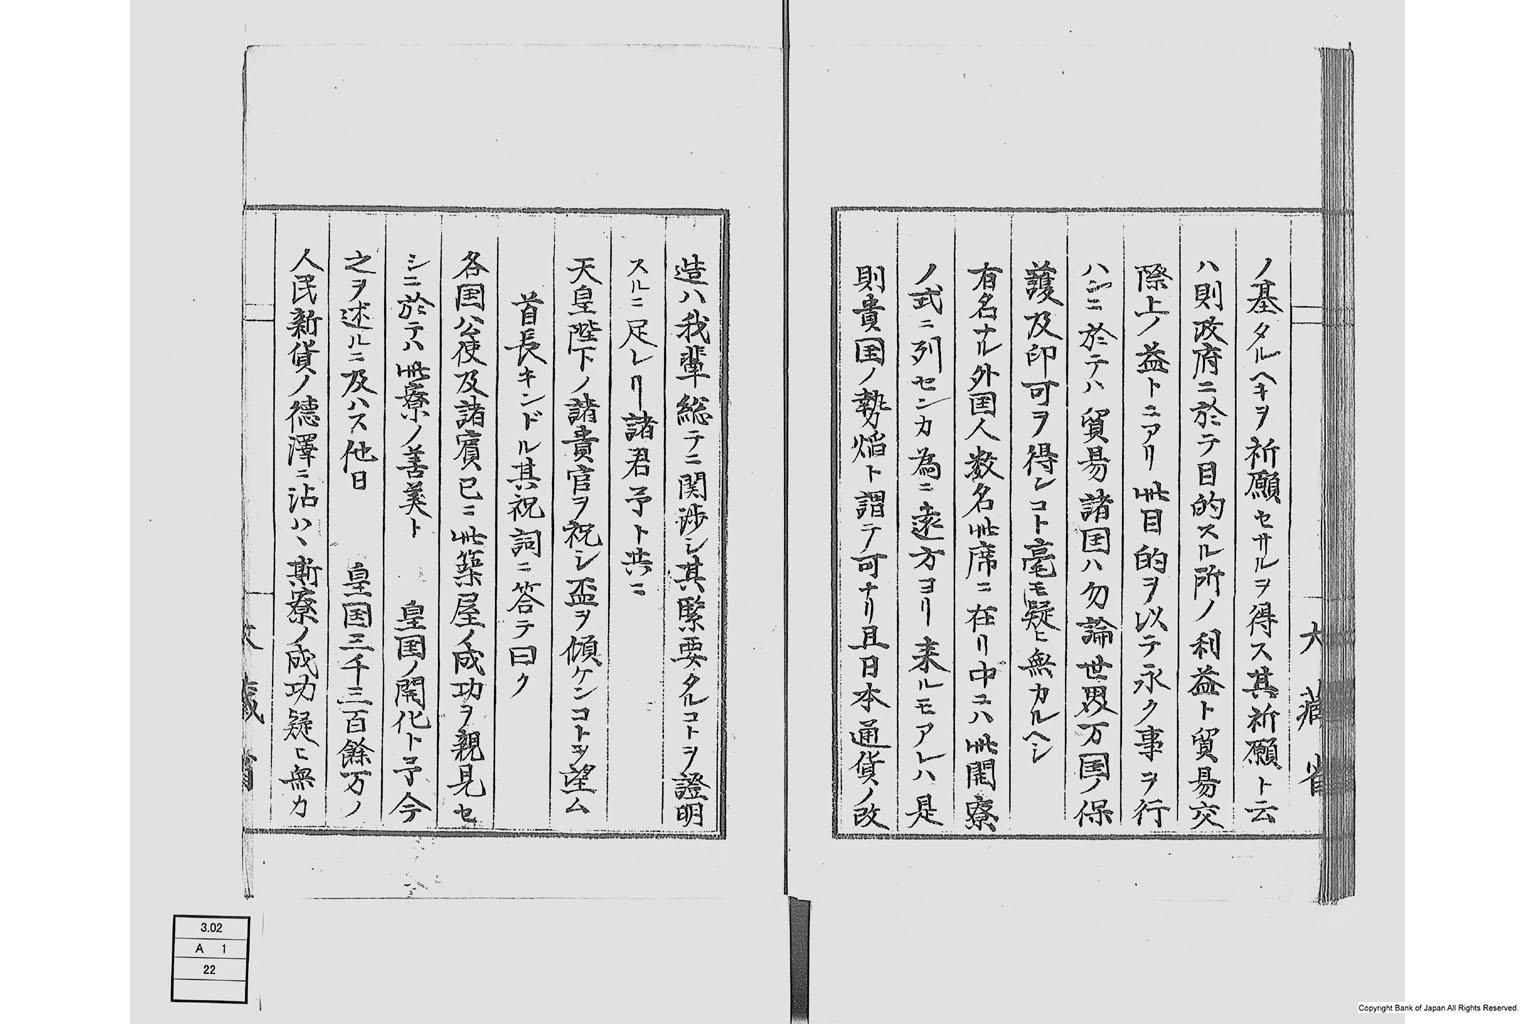 ノ基タルヘキヲ祈願セサルヲ得ス其祈願ト云
ハ則政府ニ於テ目的スル所ノ利益ト貿易交
際上ノ益トニアリ此目的ヲ以テ永ク事ヲ行
ハンニ於テハ貿易諸国ハ勿論世界万国ノ保
護及印可ヲ得ンコト毫モ疑ヒ無カルヘシ
有名ナル外国人数名此席ニ在リ中ニハ此開寮
ノ式ニ列センカ為ニ遠方ヨリ来ルモアレハ是
則貴国ノ勢焔ト謂テ可ナリ且日本通貨ノ改
大藏省
造ハ我輩総テニ関渉シ其緊要タルコトヲ證明
スルニ足レリ諸君予ト共ニ
天皇陛下ノ諸貴官ヲ祝シ盃ヲ傾ケンコトヲ望ム
首長キンドル其祝詞ニ答テ曰ク
各国公使及諸賓已ニ此築屋ノ成功ヲ親見セ
シニ於テハ此寮ノ善美ト 皇国ノ開化ト予今
之ヲ述ルニ及ハス他日 皇国三千三百餘万ノ
人民新貨ノ徳澤ニ沾ハヽ斯寮ノ成功疑ヒ無カ
大藏省
3.02
A 1
22
Copyright Bank of Japan All Rights Reserved.